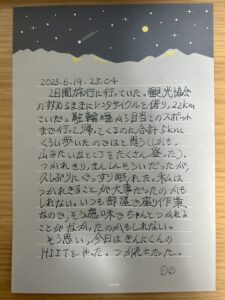 2023.6.19. 23:04
2日間旅行に行っていた。観光協会
の貯めるままにレンタサイクルを借り、22km
こいだ。駐輪場から目当てのスポット
まで行って帰ってくるのに合計5km
くらい歩いたのではと思う(しかも
山みたいなところをたくさん登った)。
つかれすぎ、まんしんそういだったが、
久しぶりにぐっすり眠れた。私は
つかれきることが大事だったのかも
しれない。いつも部屋で座り作業
なので、そう意味でちゃんとつかれる
ことがなかったのかもしれない。
そう思い、今日はさんにんの
HIITをやった。つかれきった。